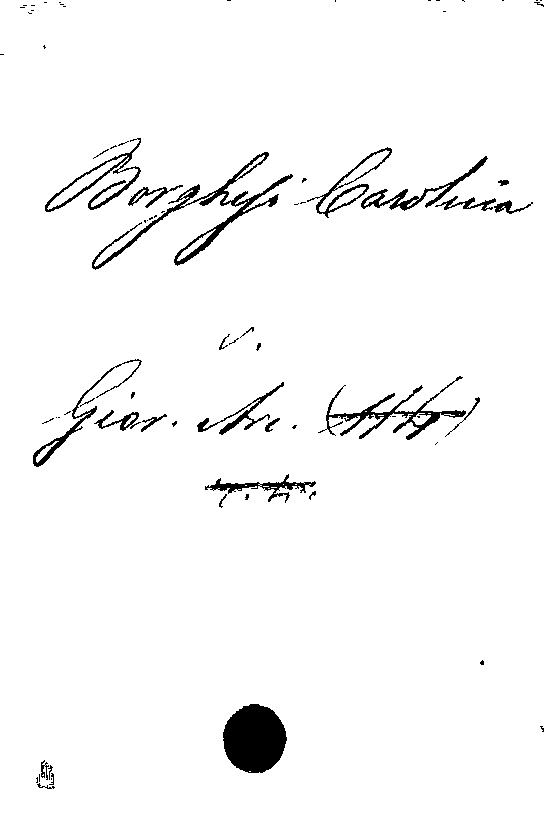 Borghesi Carolina
v.
Gior. Arc.